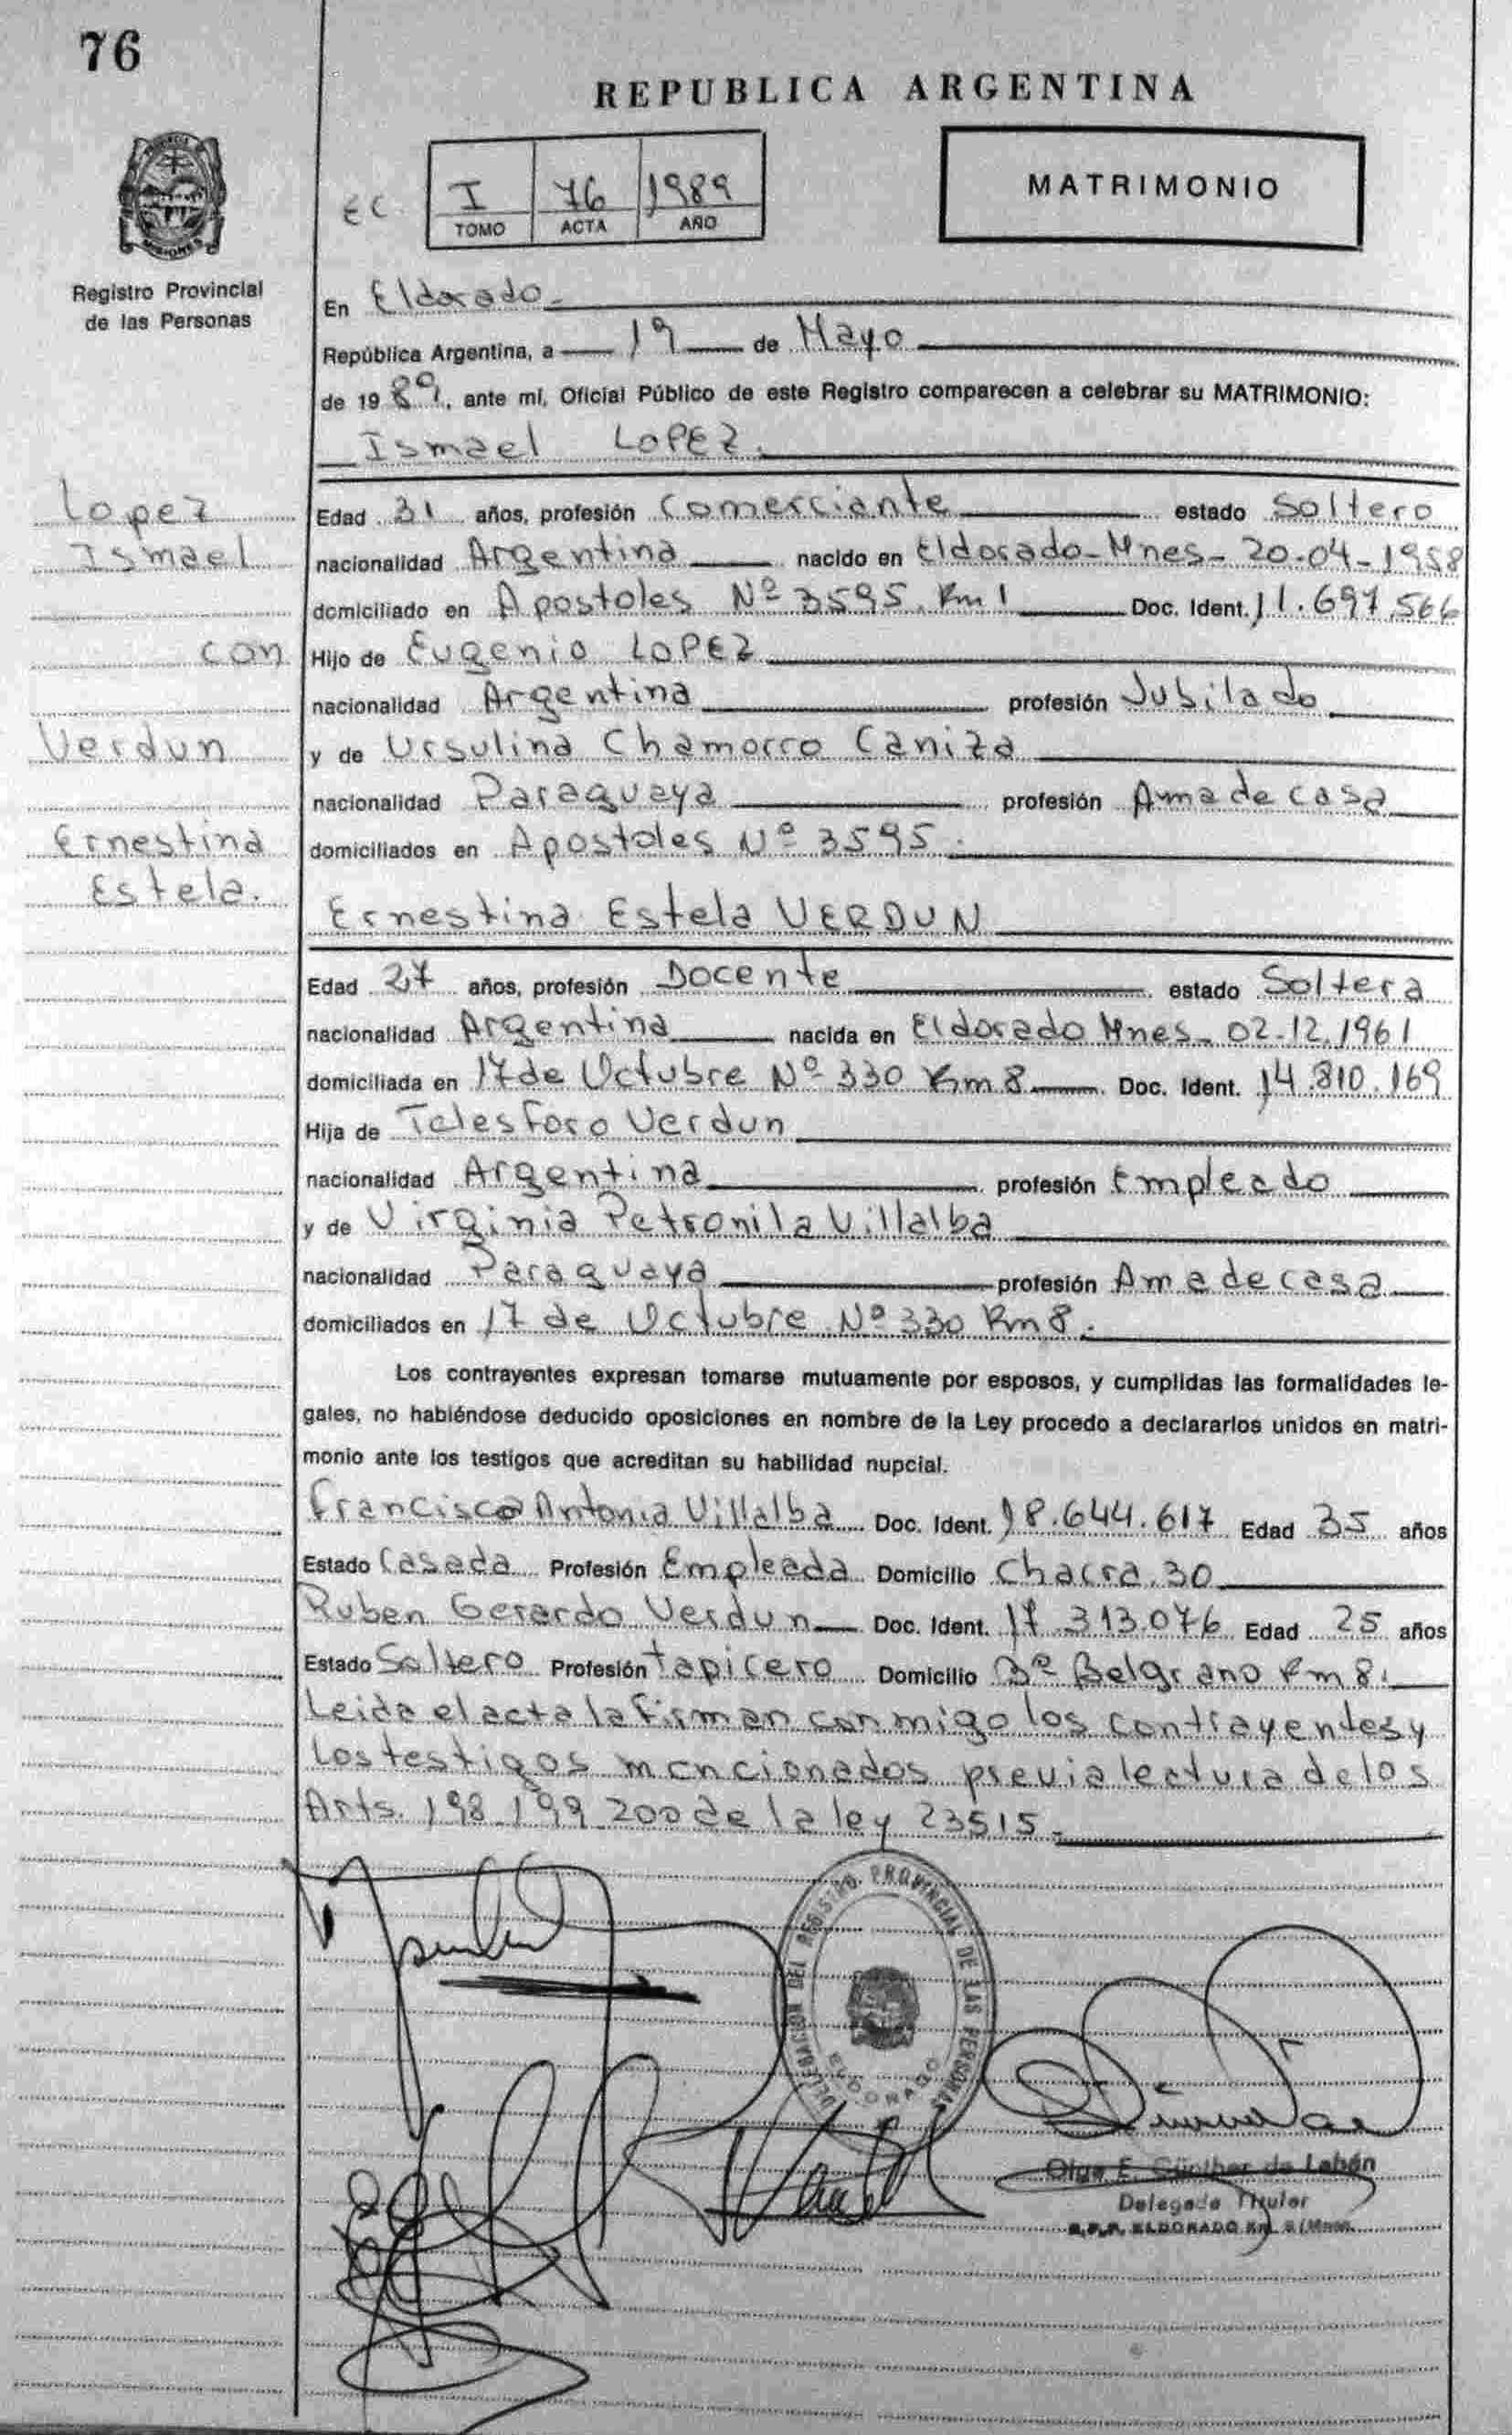 76
REPUBLICA ARGENTINA
MISIONES
Registro Provincial
de las Personas
EC
I 76 1989
TOMO ACTA AÑO
MATRIMONIO
En Eldorado.
República Argentina, a 19 de Mayo
de 1989, ante mí, Oficial Público de este Registro comparecen a celebrar su MATRIMONIO:
Ismael LOPEZ.
Lopez
Ismael
con
Verdun
Ernestina
Estela.
Edad 31 años, profesión Comerciante estado Soltero
nacionalidad Argentina nacido en Eldorado-Mnes- 20-04-1958
domiciliado en Apostoles Nº 3595. Km 1 Doc. Ident. 11.697.566
Hijo de Eugenio LOPEZ
nacionalidad Argentina profesión Jubilado
y de Ursulina Chamorro Caniza
nacionalidad Paraguaya profesión Ama de casa
domiciliados en Apostoles Nº 3595.
Ernestina Estela VERDUN
Edad 27 años, profesión Docente estado Soltera
nacionalidad Argentina nacida en Eldorado Mnes- 02-12.1961
domiciliada en 17 de Octubre Nº 330 Km 8 Doc. Ident. 14.810.169
Hija de Telesforo Verdun
nacionalidad Argentina profesión Empleado
y de Virginia Petronila Villalba
nacionalidad Paraguaya profesión Ama de casa
domiciliados en 17 de Octubre Nº 330 Km 8.
Los contrayentes expresan tomarse mutuamente por esposos, y cumplidas las formalidades le-
gales, no habiéndose deducido oposiciones en nombre de la Ley procedo a declararlos unidos en matri-
monio ante los testigos que acreditan su habilidad nupcial.
Francisca Antonia Villalba Doc. Ident. 18.644.617 Edad 35 años
Estado Casada Profesión Empleada Domicilio Chacra 30
Ruben Gerardo Verdun Doc. Ident. 17.313.076 Edad 25 años
Estado Soltero Profesión tapicero Domicilio Bº Belgrano Km 8.
Leida el acta la firman conmigo los contrayentes y
los testigos mencionados previa lectura de los
Arts. 198-199-200 de la ley 23515.
DELEGACION DEL REGISTRO PROVINCIAL DE LAS PERSONAS
ELDORADO
Olga E. Günther de Labán
Delegada Titular
R.P.P. ELDORADO Km.